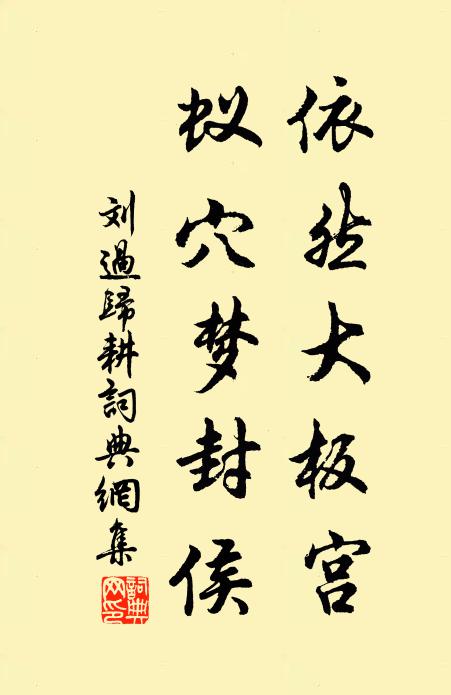 依然大板宫
蚁穴梦封侯
刘過歸耕詞典網集
詞典網印